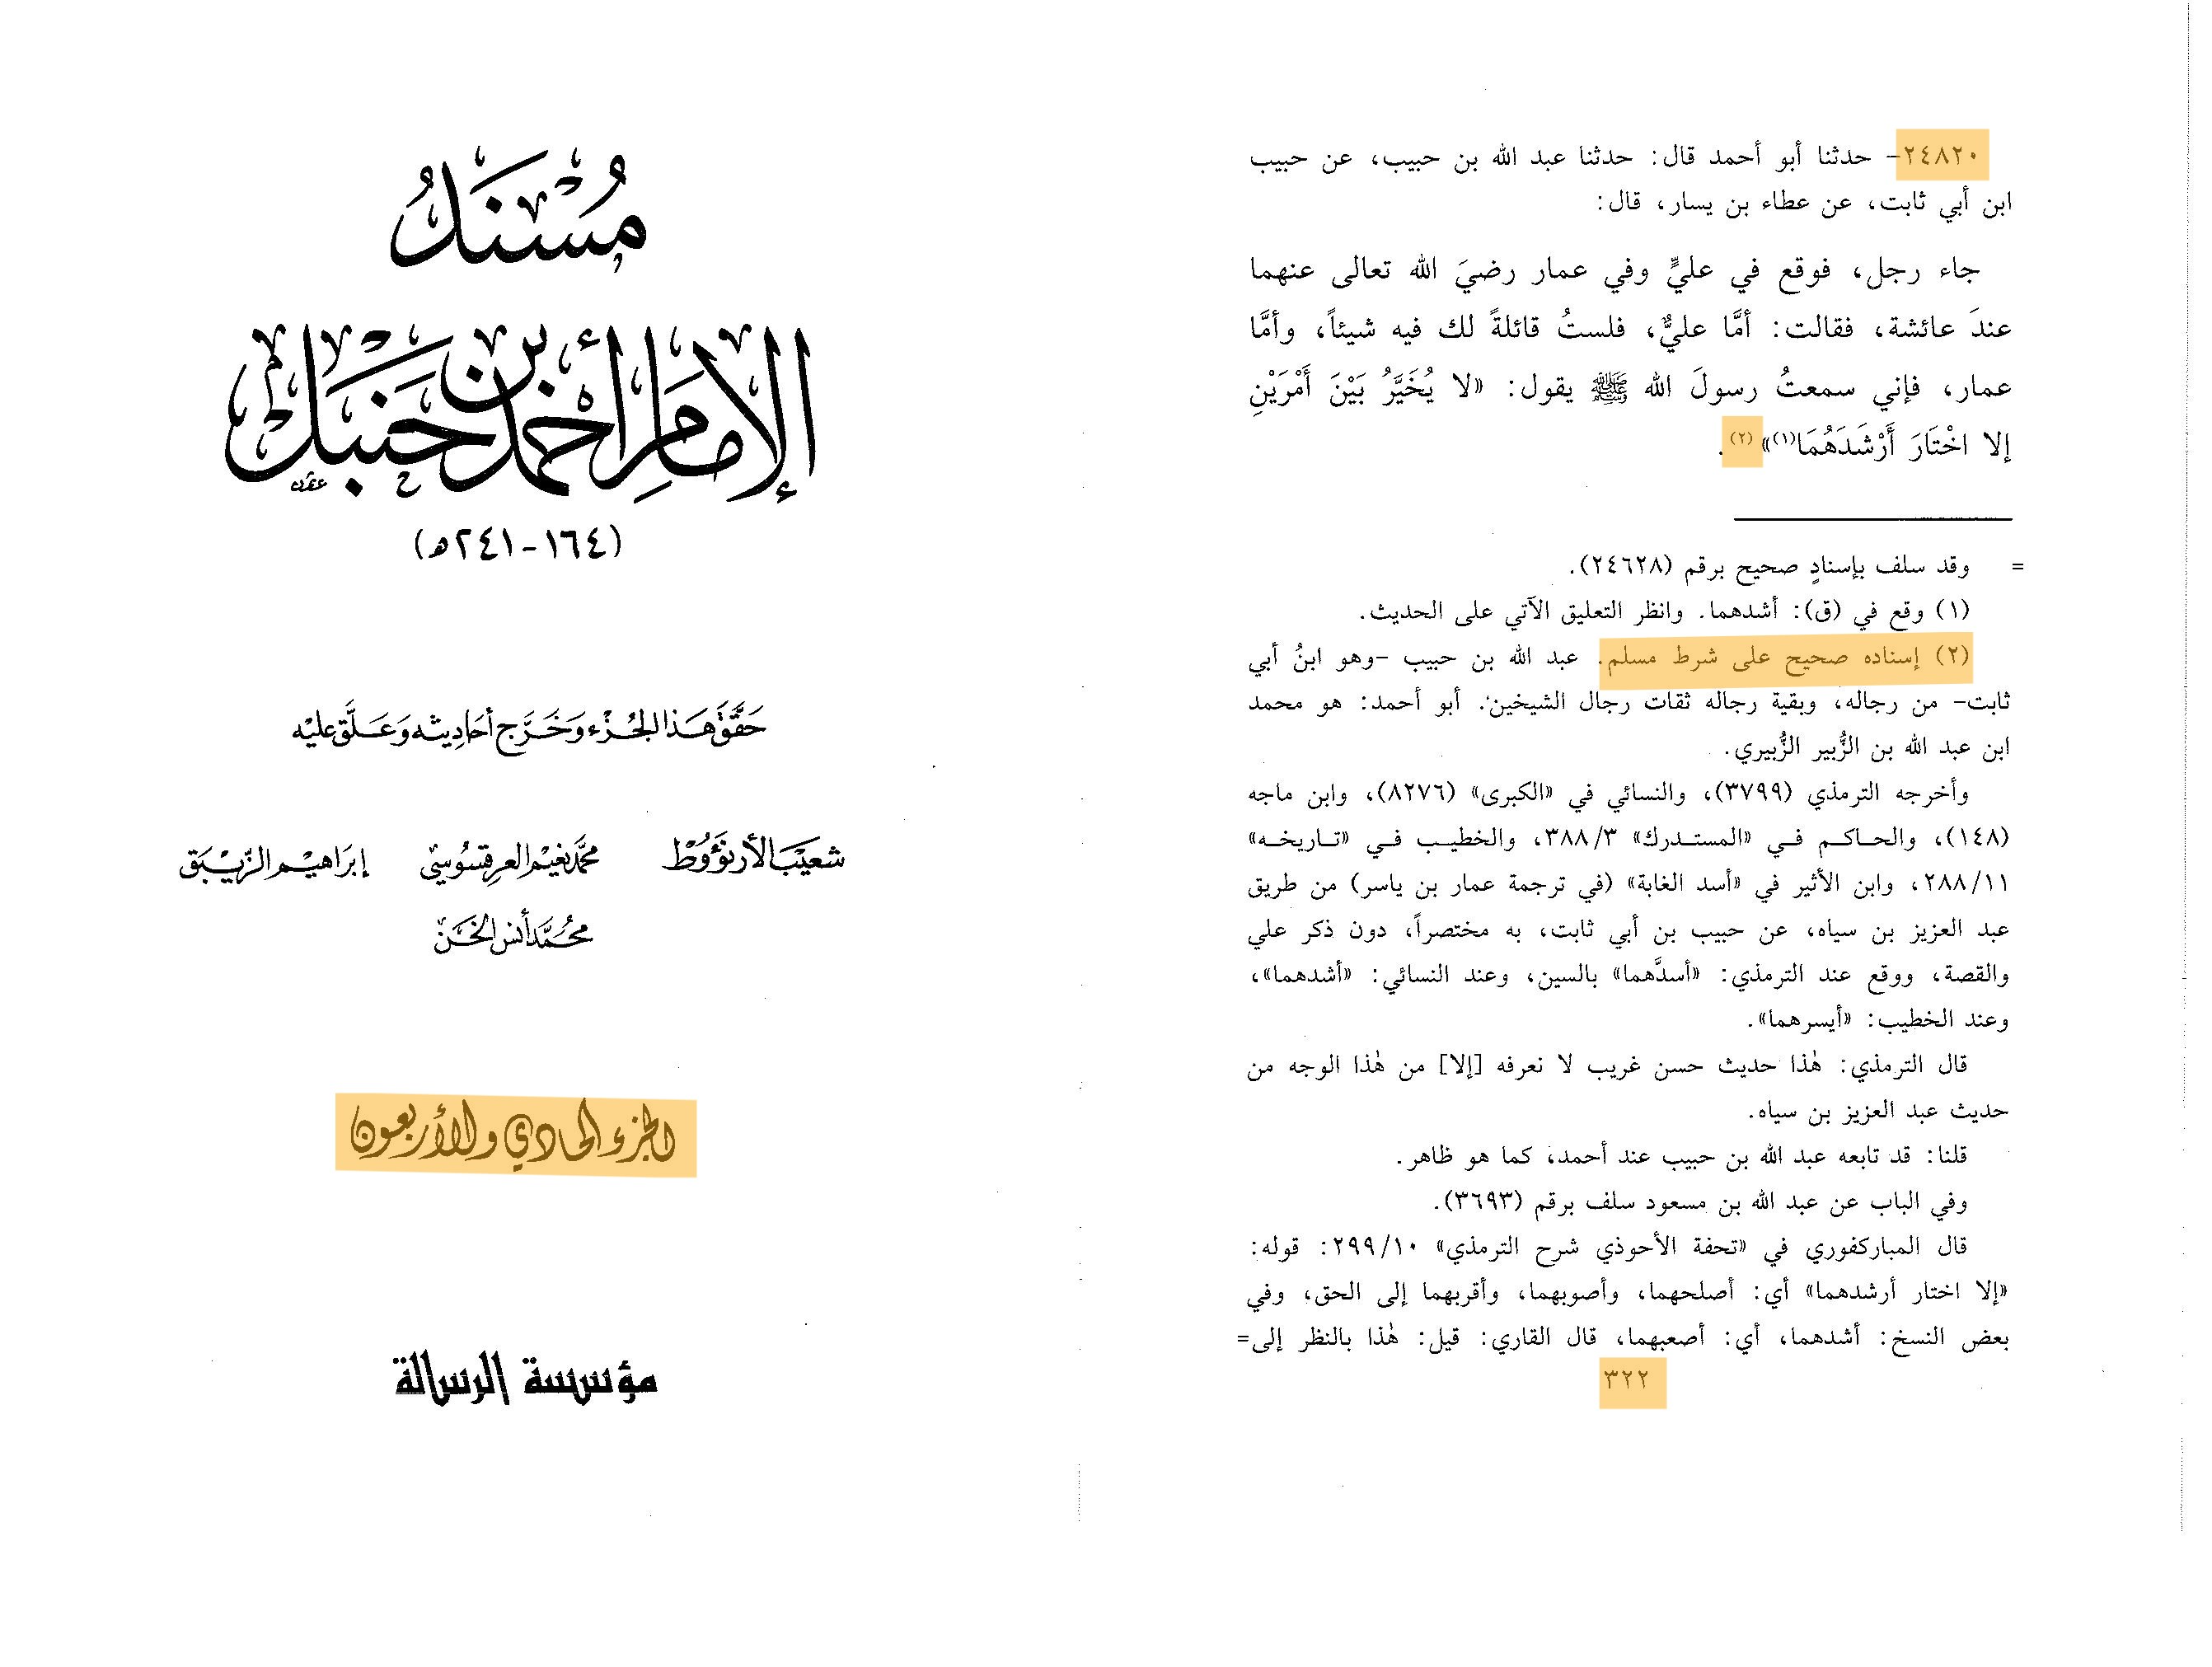 مُسْنَدُ
الإمَامِ أَحْمَدَ بْنِ حَنْبَل
(١٦٤-٢٤١ه)
حَقَّقَ هَذا الجُزْءَ وَخَرَّج أحَاديثه وَعَلَّق عليْه
شعيْبَ الأرنؤُوط محمَّد نعيْم العرقسُوسيّ إبرَاهيْم الزّيبَق
محُمَّد أنس الخَنّ
الجزء الحادي والأربعون
مؤسسة الرسالة
٢٤٨٢٠- حدثنا أبو أحمد قال: حدثنا عبد الله بن حبيب، عن حبيب
ابن أبي ثابت، عن عطاء بن يسار، قال:
جاء رجل، فوقع في عليٍّ وفي عمار رضيَ الله تعالى عنهما
عندَ عائشة، فقالت: أمَّا عليٌّ، فلستُ قائلةً لك فيه شيئاً، وأمَّا
عمار، فإني سمعتُ رسولَ الله ﷺ يقول: «لا يُخَيَّرُ بَيْنَ أَمْرَيْنِ
إلا اخْتَارَ أَرْشَدَهُمَا(١)»(٢).
= وقد سلف بإسنادٍ صحيح برقم (٢٤٦٢٨).
(١) وقع في (ق): أشدهما. وانظر التعليق الآتي على الحديث.
(٢) إسناده صحيح على شرط مسلم. عبد الله بن حبيب -وهو ابنُ أبي
ثابت- من رجاله، وبقية رجاله ثقات رجال الشيخين. أبو أحمد: هو محمد
ابن عبد الله بن الزُّبير الزُّبيري.
وأخرجه الترمذي (٣٧٩٩)، والنسائي في «الكبرى» (٨٢٧٦)، وابن ماجه
(١٤٨)، والحاكم في «المستدرك» ٣٨٨/٣، والخطيب في «تاريخه»
٢٨٨/١١، وابن الأثير في «أسد الغابة» (في ترجمة عمار بن ياسر) من طريق
عبد العزيز بن سياه، عن حبيب بن أبي ثابت، به مختصراً، دون ذكر علي
والقصة، ووقع عند الترمذي: «أسدَّهما» بالسين، وعند النسائي: «أشدهما»،
وعند الخطيب: «أيسرهما».
قال الترمذي: هٰذا حديث حسن غريب لا نعرفه [إلا] من هٰذا الوجه من
حديث عبد العزيز بن سياه.
قلنا: قد تابعه عبد الله بن حبيب عند أحمد، كما هو ظاهر.
وفي الباب عن عبد الله بن مسعود سلف برقم (٣٦٩٣).
قال المباركفوري في «تحفة الأحوذي شرح الترمذي» ٢٩٩/١٠: قوله:
«إلا اختار أرشدهما» أي: أصلحهما، وأصوبهما، وأقربهما إلى الحق، وفي
بعض النسخ: أشدهما، أي: أصعبهما، قال القاري: قيل: هٰذا بالنظر إلى=
٣٢٢